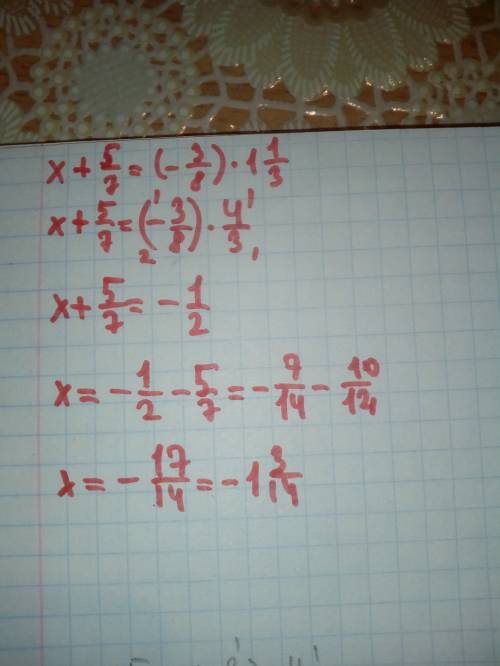 x + 5/7 = (-3/8) · 1 1/3
x + 5/7 = (-3/8) · 4/3
x + 5/7 = - 1/2
x = - 1/2 - 5/7 = - 7/14 - 10/14
x = - 17/14 = - 1 3/14